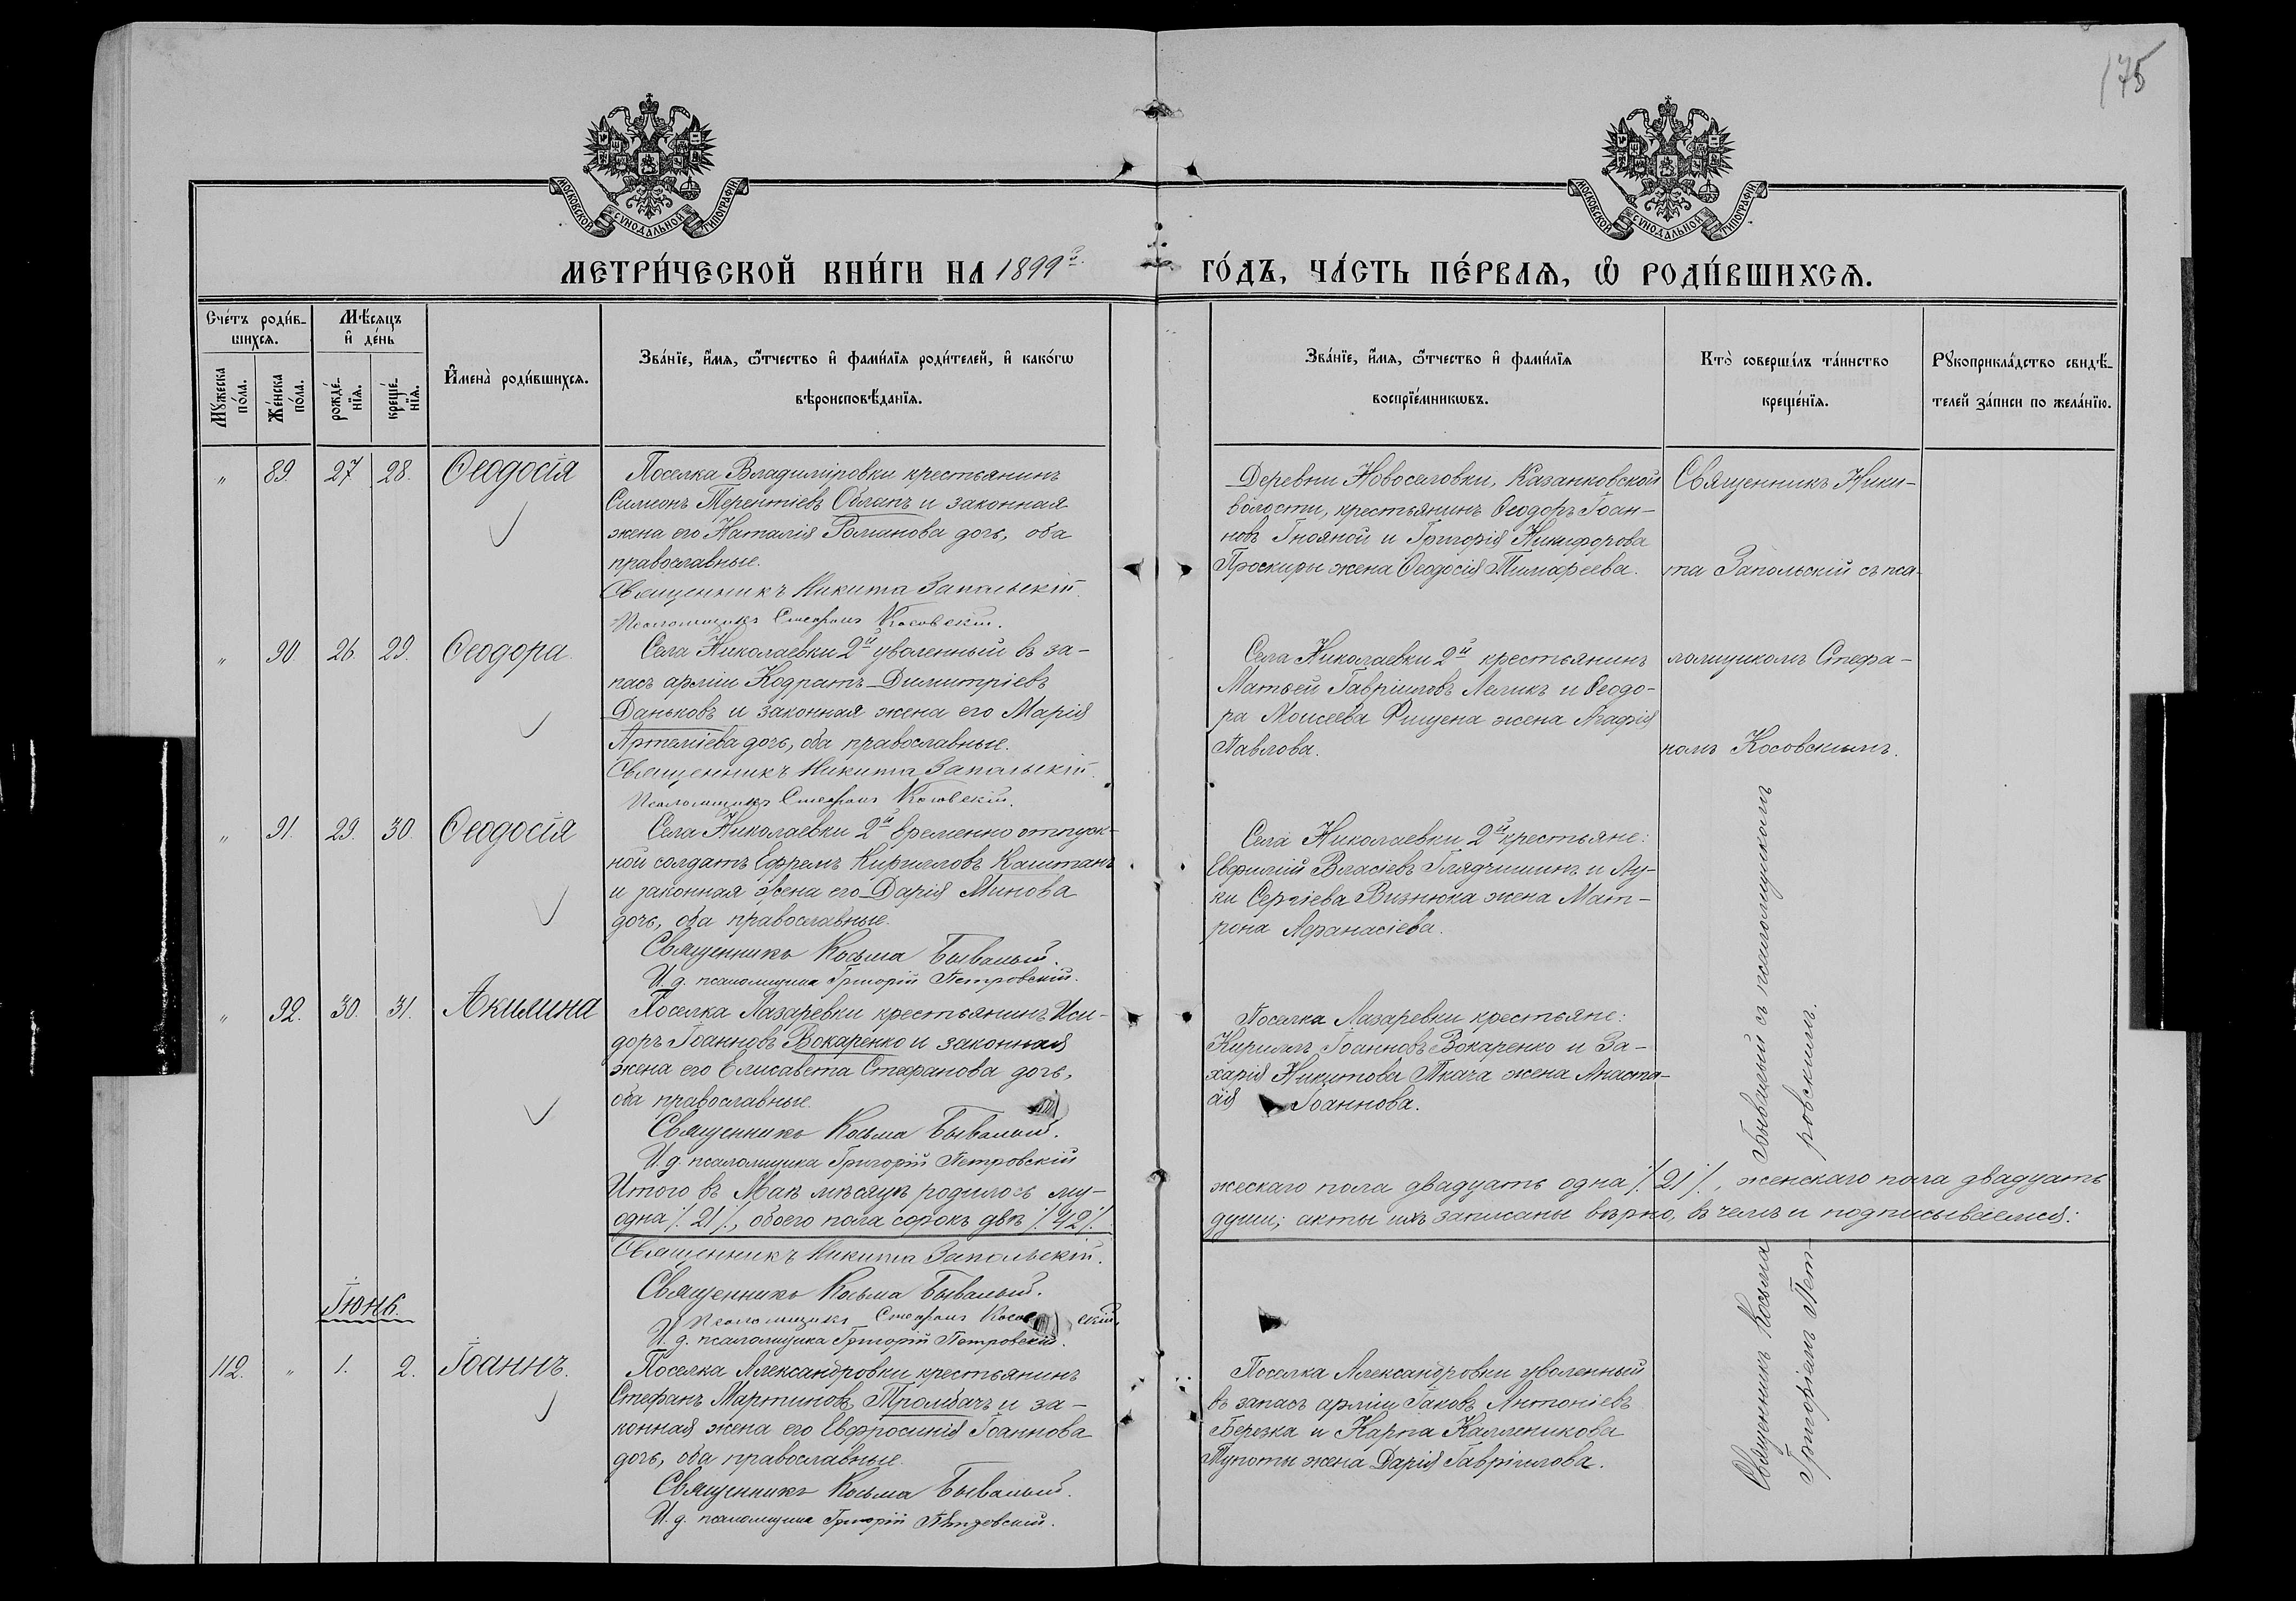 175
МОСКОВСКОЙ СѴНОДАЛЬНОЙ ТИПОГРАФІИ
МОСКОВСКОЙ СѴНОДАЛЬНОЙ ТИПОГРАФІИ
МЕТРИ́ЧЕСКОЙ КНИ́ГИ НА 1899й
ГО́ДЪ, ЧА́СТЬ ПЕ́РВАѦ, Ѽ РОДИ́ВШИХСѦ.
Сче́тъ роди́в-
шихсѧ.
Мѣ́сяцъ
и҆ де́нь
Мꙋ́жеска
по́ла.
Же́нска
по́ла.
рожде́-
нїѧ.
креще́-
нїѧ.
И҆мена̀ роди́вшихсѧ.
Зва́нїе, и҆́мѧ, ѻ҆́тчество и҆ фами́лїѧ роди́телей, и҆ како́гѡ
вѣроисповѣ́данїѧ.
Зва́нїе, и҆́мѧ, ѻ҆́тчество и҆ фами́лїѧ
воспрїе́мникѡвъ.
Кто̀ соверша́лъ та́инство
креще́нїѧ.
Рꙋкоприкла́дство свидѣ́-
телей за́писи по жела́нїю.
" 89. 27 28. Ѳеодосія
Поселка Владиміровки крестьянинъ
Симеонъ Терентіевъ Облапъ и законная
жена его Наталія Романова дочь, оба
православные.
Священникъ Никита Запольскій.
Псаломщикъ Стефанъ Косовскій.
Деревни Новоселовки, Казанковской
волости, крестьянинъ Ѳеодоръ Іоан-
новъ Гнояной и Григорія Никифорова
Проскуры жена Ѳеодосія Тимофеева.
Священникъ Ники-
та Запольскій съ пса-
" 90. 26. 29. Ѳеодора.
Села Николаевки 2й уволенный въ за-
пасъ арміи Кодратъ Димитріевъ
Даньковъ и законная жена его Марія
Артеміева дочь, оба православные.
Священникъ Никита Запольскій.
Псаломщикъ Стефанъ Косовскій.
Села Николаевки 2й крестьянинъ
Матѳей Гавріиловъ Лелекъ и Ѳеодо-
ра Моисеева Фищена жена Агафія
Павлова.
ломщикомъ Стефа-
номъ Косовскимъ.
" 91. 29. 30. Ѳеодосія
Села Николаевки 2й временно отпуск-
ной солдатъ Ефремъ Кирилловъ Каштанъ
и законная жена его Дарія Минова
дочь, оба православные.
Священникъ Косьма Бывалый.
И. д. псаломщика Григорій Петровскій.
Села Николаевки 2й крестьяне:
Евфимій Власіевъ Глядчишинъ и Лу-
ки Сергіева Визнюка жена Мат-
рона Афанасіева.
" 92. 30. 31. Акилина
Поселка Лазаревки крестьянинъ Иси-
доръ Іоанновъ Вокаренко и законная
жена его Елисавета Стефанова дочь,
оба православные.
Священникъ Косьма Бывалый.
И. д. псаломщика Григорій Петровскій
Поселка Лазаревки крестьяне:
Кириллъ Іоанновъ Вокаренко и За-
харія Никитова Ткача жена Анаста-
сія Іоаннова.
Итого въ Маѣ мѣсяцѣ родилось му-
жескаго пола двадцать одна ٪ 21 ٪, женскаго пола двадцать
одна ٪ 21 ٪, обоего пола сорокъ двѣ ٪ 42 ٪
души; акты ихъ записаны вѣрно, въ чемъ и подписываемся:
Священникъ Никита Запольскій.
Священникъ Косьма Бывалый.
Псаломщикъ Стефанъ Косовскій.
И. д. псаломщика Григорій Петровскій.
Іюнь.
112. " 1. 2. Іоаннъ.
Поселка Александровки крестьянинъ
Стефанъ Мартиновъ Тромбачъ и за-
конная жена его Евфросинія Іоаннова
дочь, оба православные.
Священникъ Косьма Бывалый.
И. д. псаломщика Григорій Петровскій.
Поселка Александровки уволенный
въ запасъ арміи Іаковъ Антоніевъ
Березка и Карпа Каллениковa
Тупоты жена Дарія Гавріилова.
Священникъ Косьма Бывалый съ псаломщикомъ
Григоріемъ Петровскимъ.